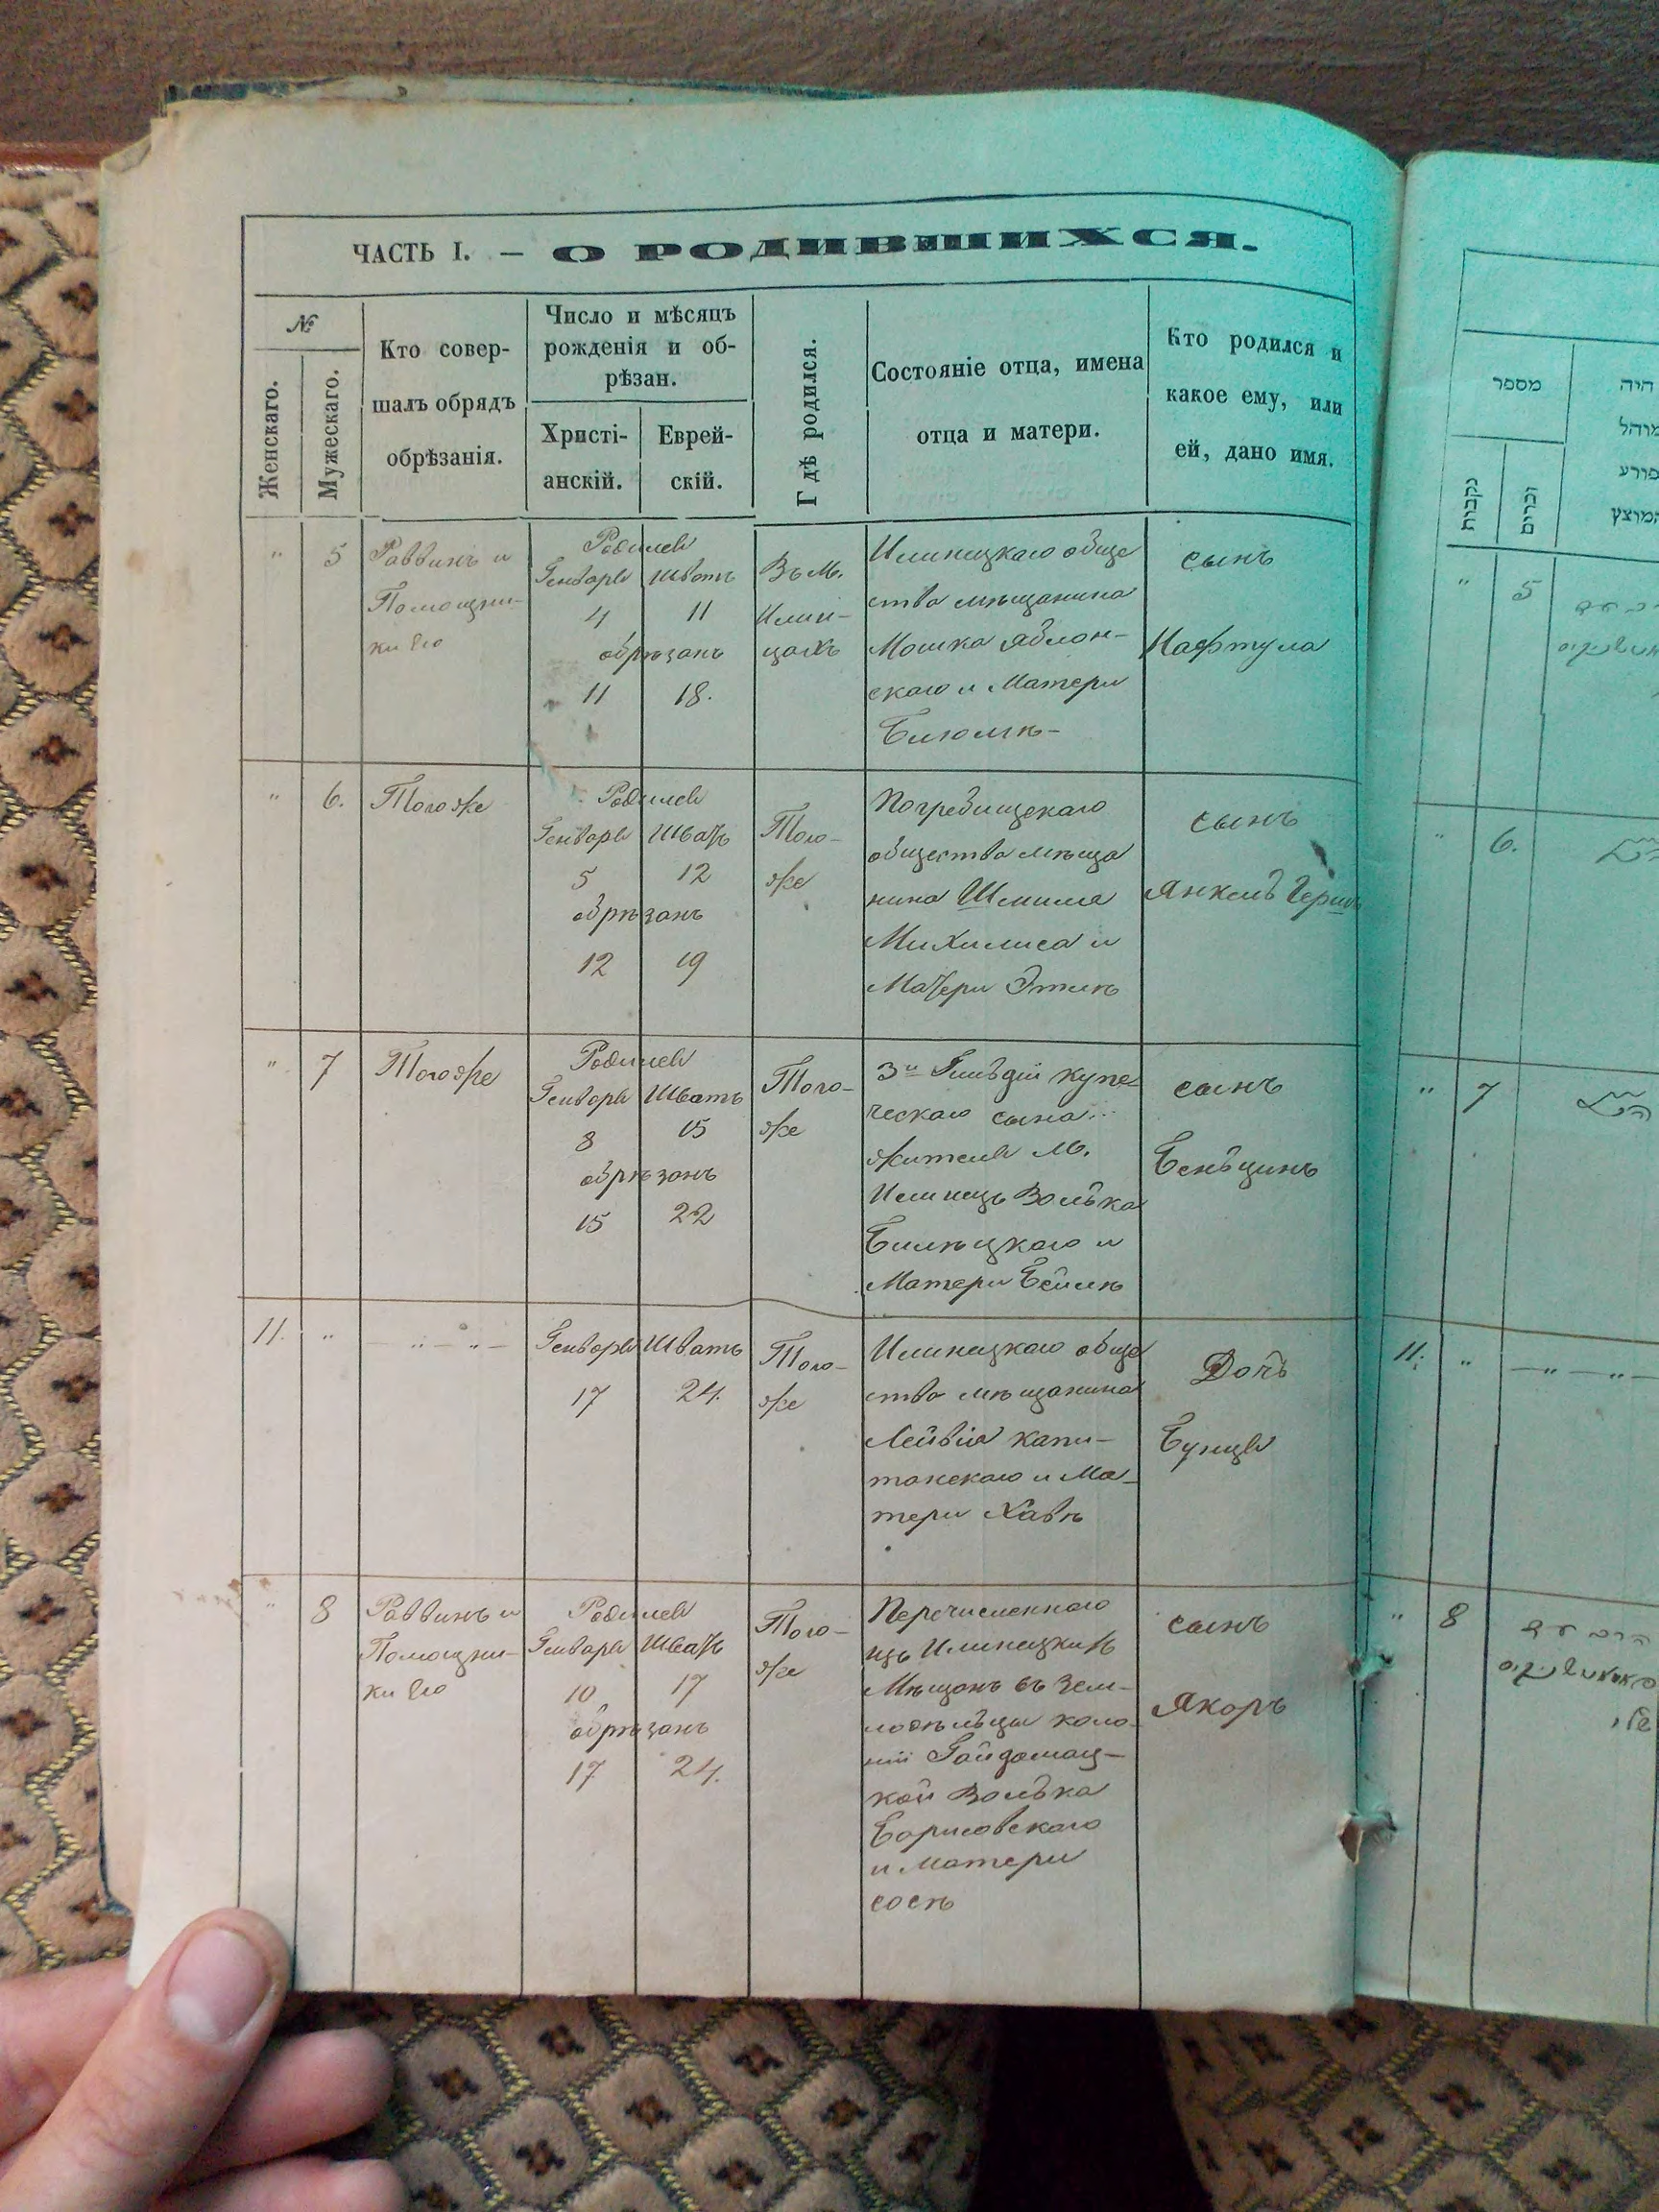 ЧАСТЬ I. — О РОДИВШИХСЯ.
№
Женскаго.
Мужескаго.
Кто совер-
шалъ обрядъ
обрѣзанія.
Число и мѣсяцъ
рожденія и об-
рѣзан.
Христі-
анскій.
Еврей-
скій.
Гдѣ родился.
Состояніе отца, имена
отца и матери.
Кто родился и
какое ему, или
ей, дано имя.
" 5
Раввинъ и
Помощни-
ки его
Родился
Генваря Шватъ
4 11
обрѣзанъ
11 18.
Въ М.
Илин-
цахъ
Илинецкаго обще
ства мѣщанина
Мошка Яблон-
скаго и Матери
Блюмѣ-
сынъ
Нафтула
" 6.
Тогоже
Родился
Генваря Шватъ
5 12
обрѣзанъ
12 19
Того-
же
Погребищскаго
общества мѣща
нина Шмиля
Михилиса и
Матери Этлѣ
сынъ
Янкель Герш
" 7
Тогоже
Родился
Генваря Шватъ
8 15
обрѣзанъ
15 22
Того-
же
3й Гильдіи купе-
ческаго сына
жителя М.
Илинецъ Волька
Билѣцкаго и
Матери Бейлѣ
сынъ
Беньцинъ
11. "
— " — " —
Генваря Шватъ
17 24.
Того-
же
Илинецкаго обще
ства мѣщанина
Лейвія Капи-
танскаго и Ма-
тери Хавѣ
Дочь
Бунця
" 8
Раввинъ и
Помощни-
ки его
Родился
Генваря Шватъ
10 17
обрѣзанъ
17 24.
Того-
же
Перечисленнаго
изъ Илинецкихъ
Мѣщанъ въ Зем-
ледѣльцы коло-
ніи Гайдамац-
кой Волька
Борисовскаго
и Матери
Сосѣ
сынъ
Якоръ
מספר
נקבות
זכרים
היה
מוהל
פורע
המוצץ
" 5
" 6.
" 7
11. "
— " — " —
" 8